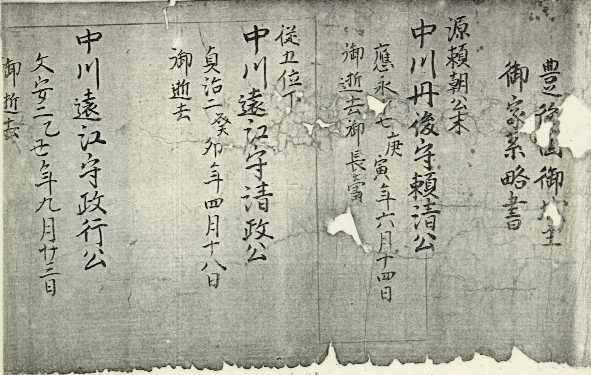 豊後国御城主
御家系略書
源頼朝公末
中川丹後守頼清公
應永十七庚寅年六月十四日
御逝去御長壽
従五位下
中川遠江守清政公
貞治二癸卯年四月十八日
御逝去
中川遠江守政行公
文安二乙丑年九月廿三日
御逝去